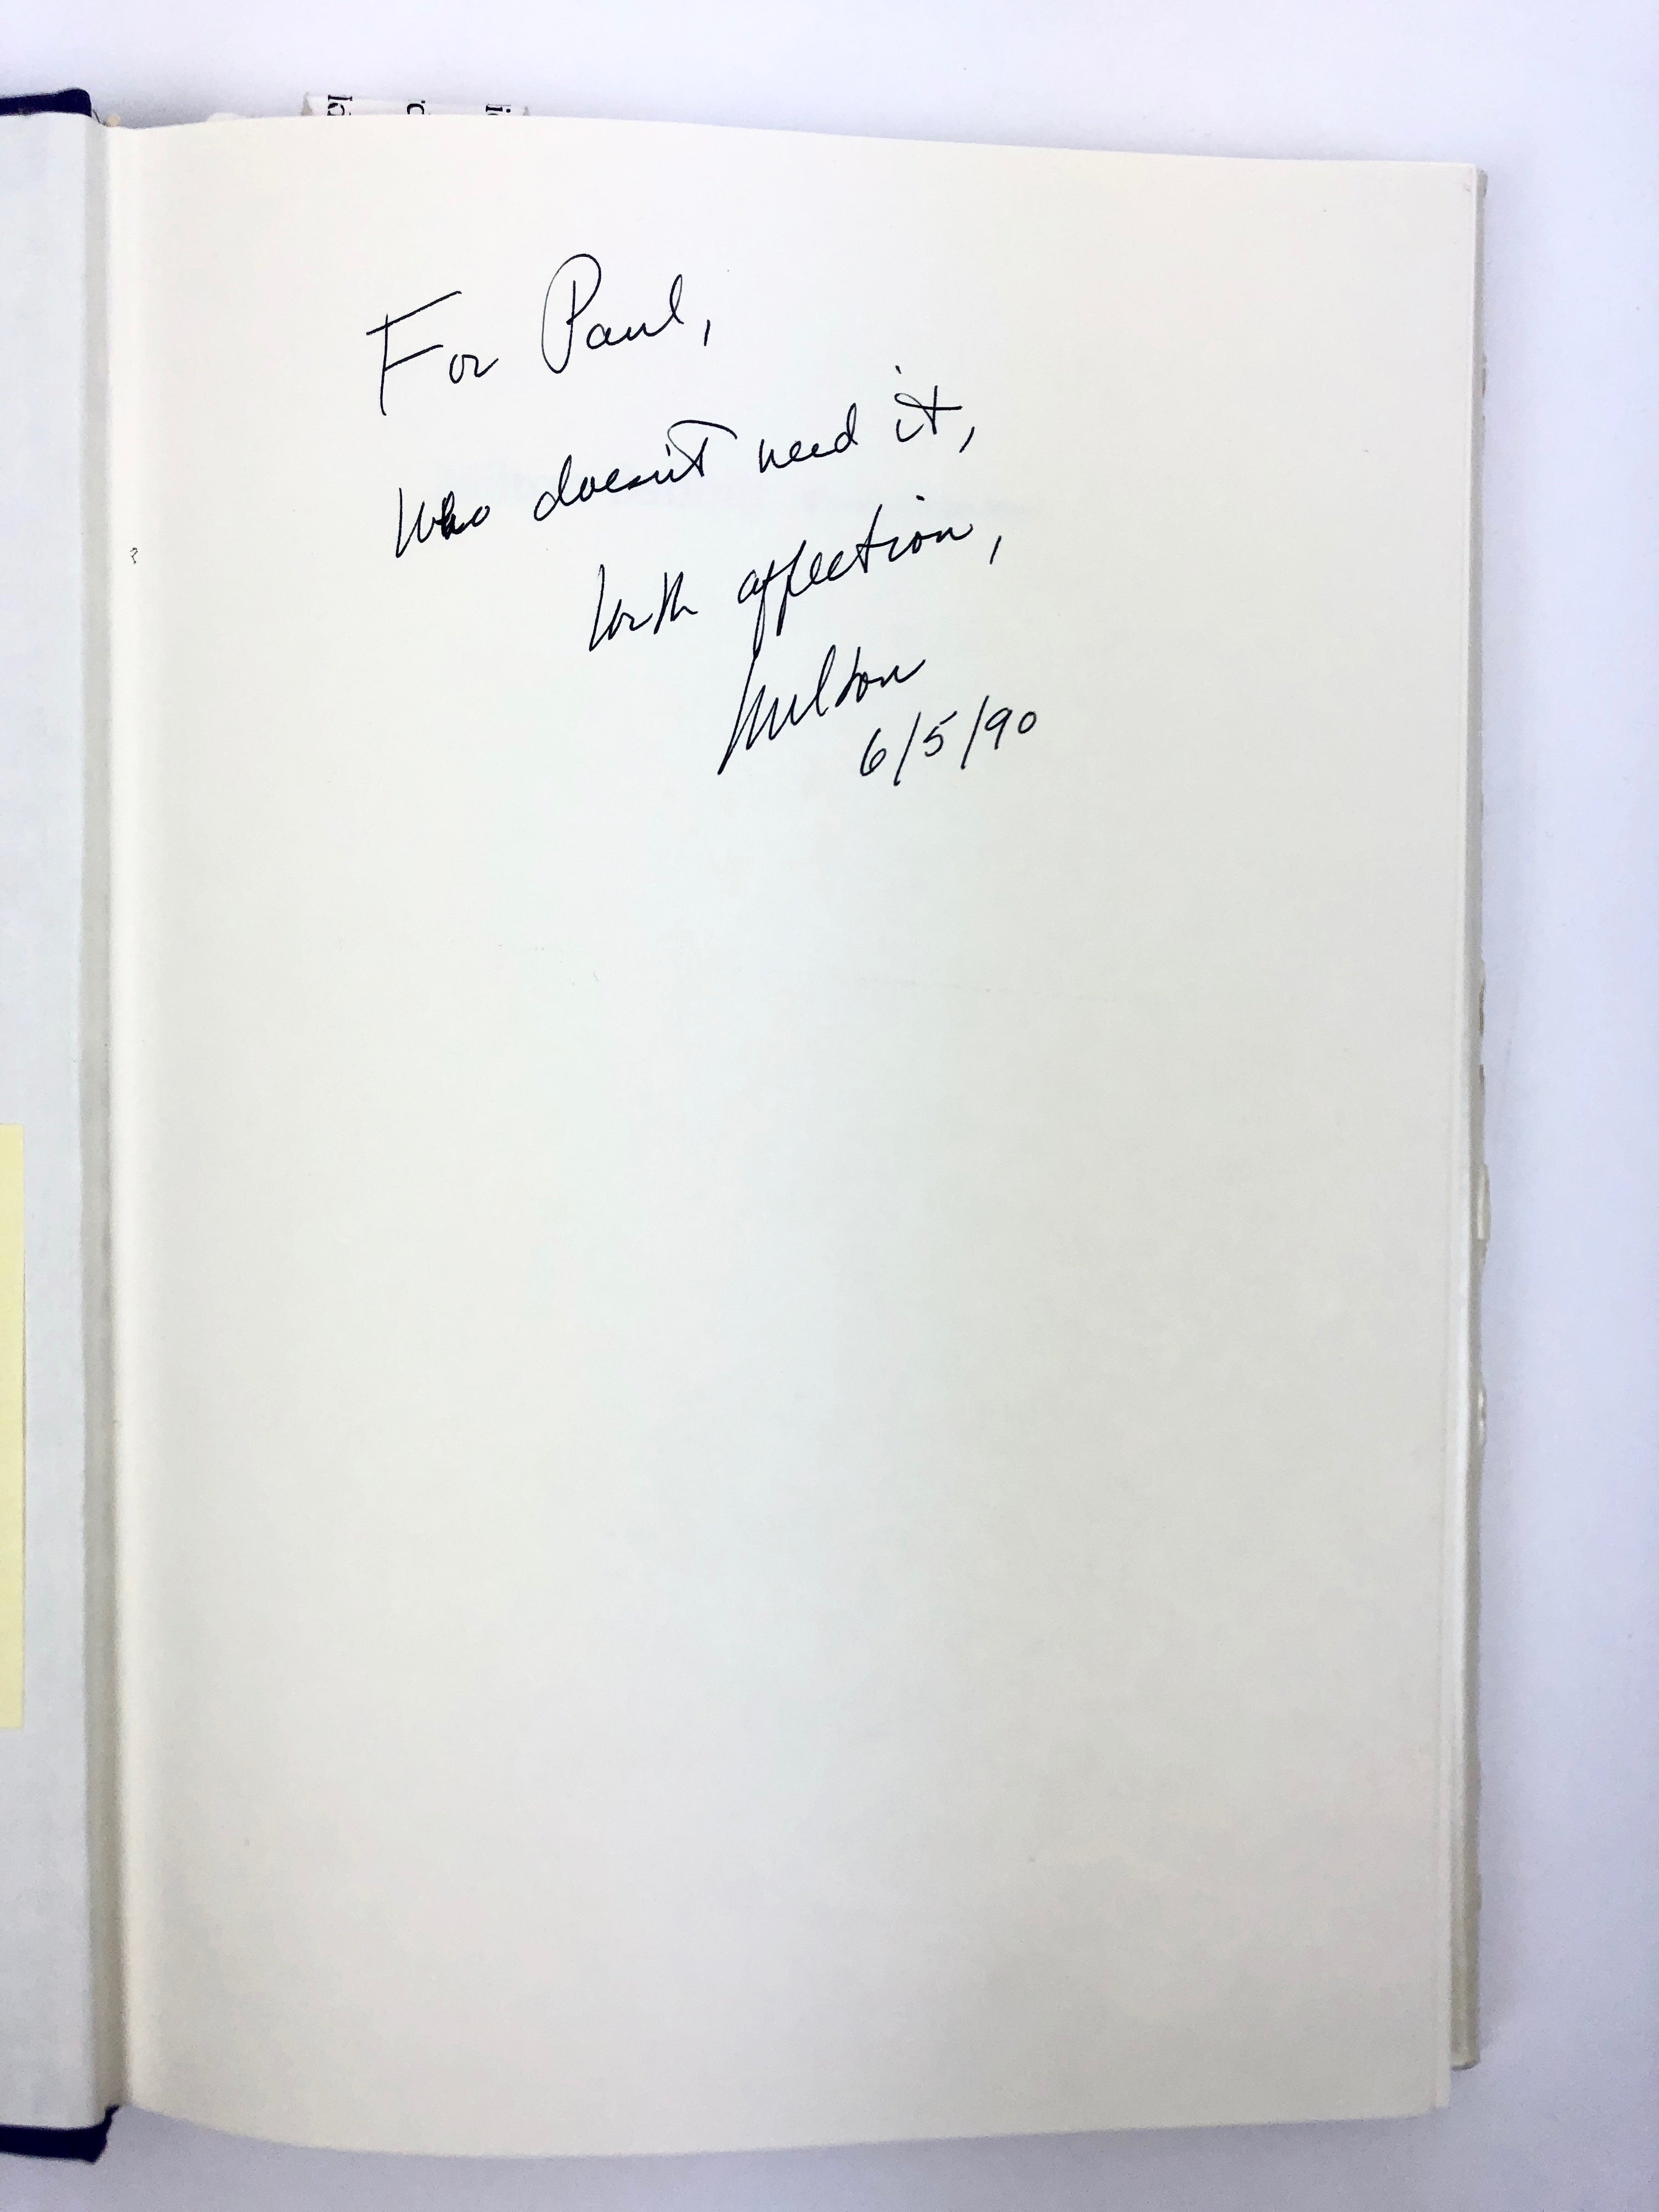 For Paul,
who doesn't need it,
with affection,
Milton
6/5/90